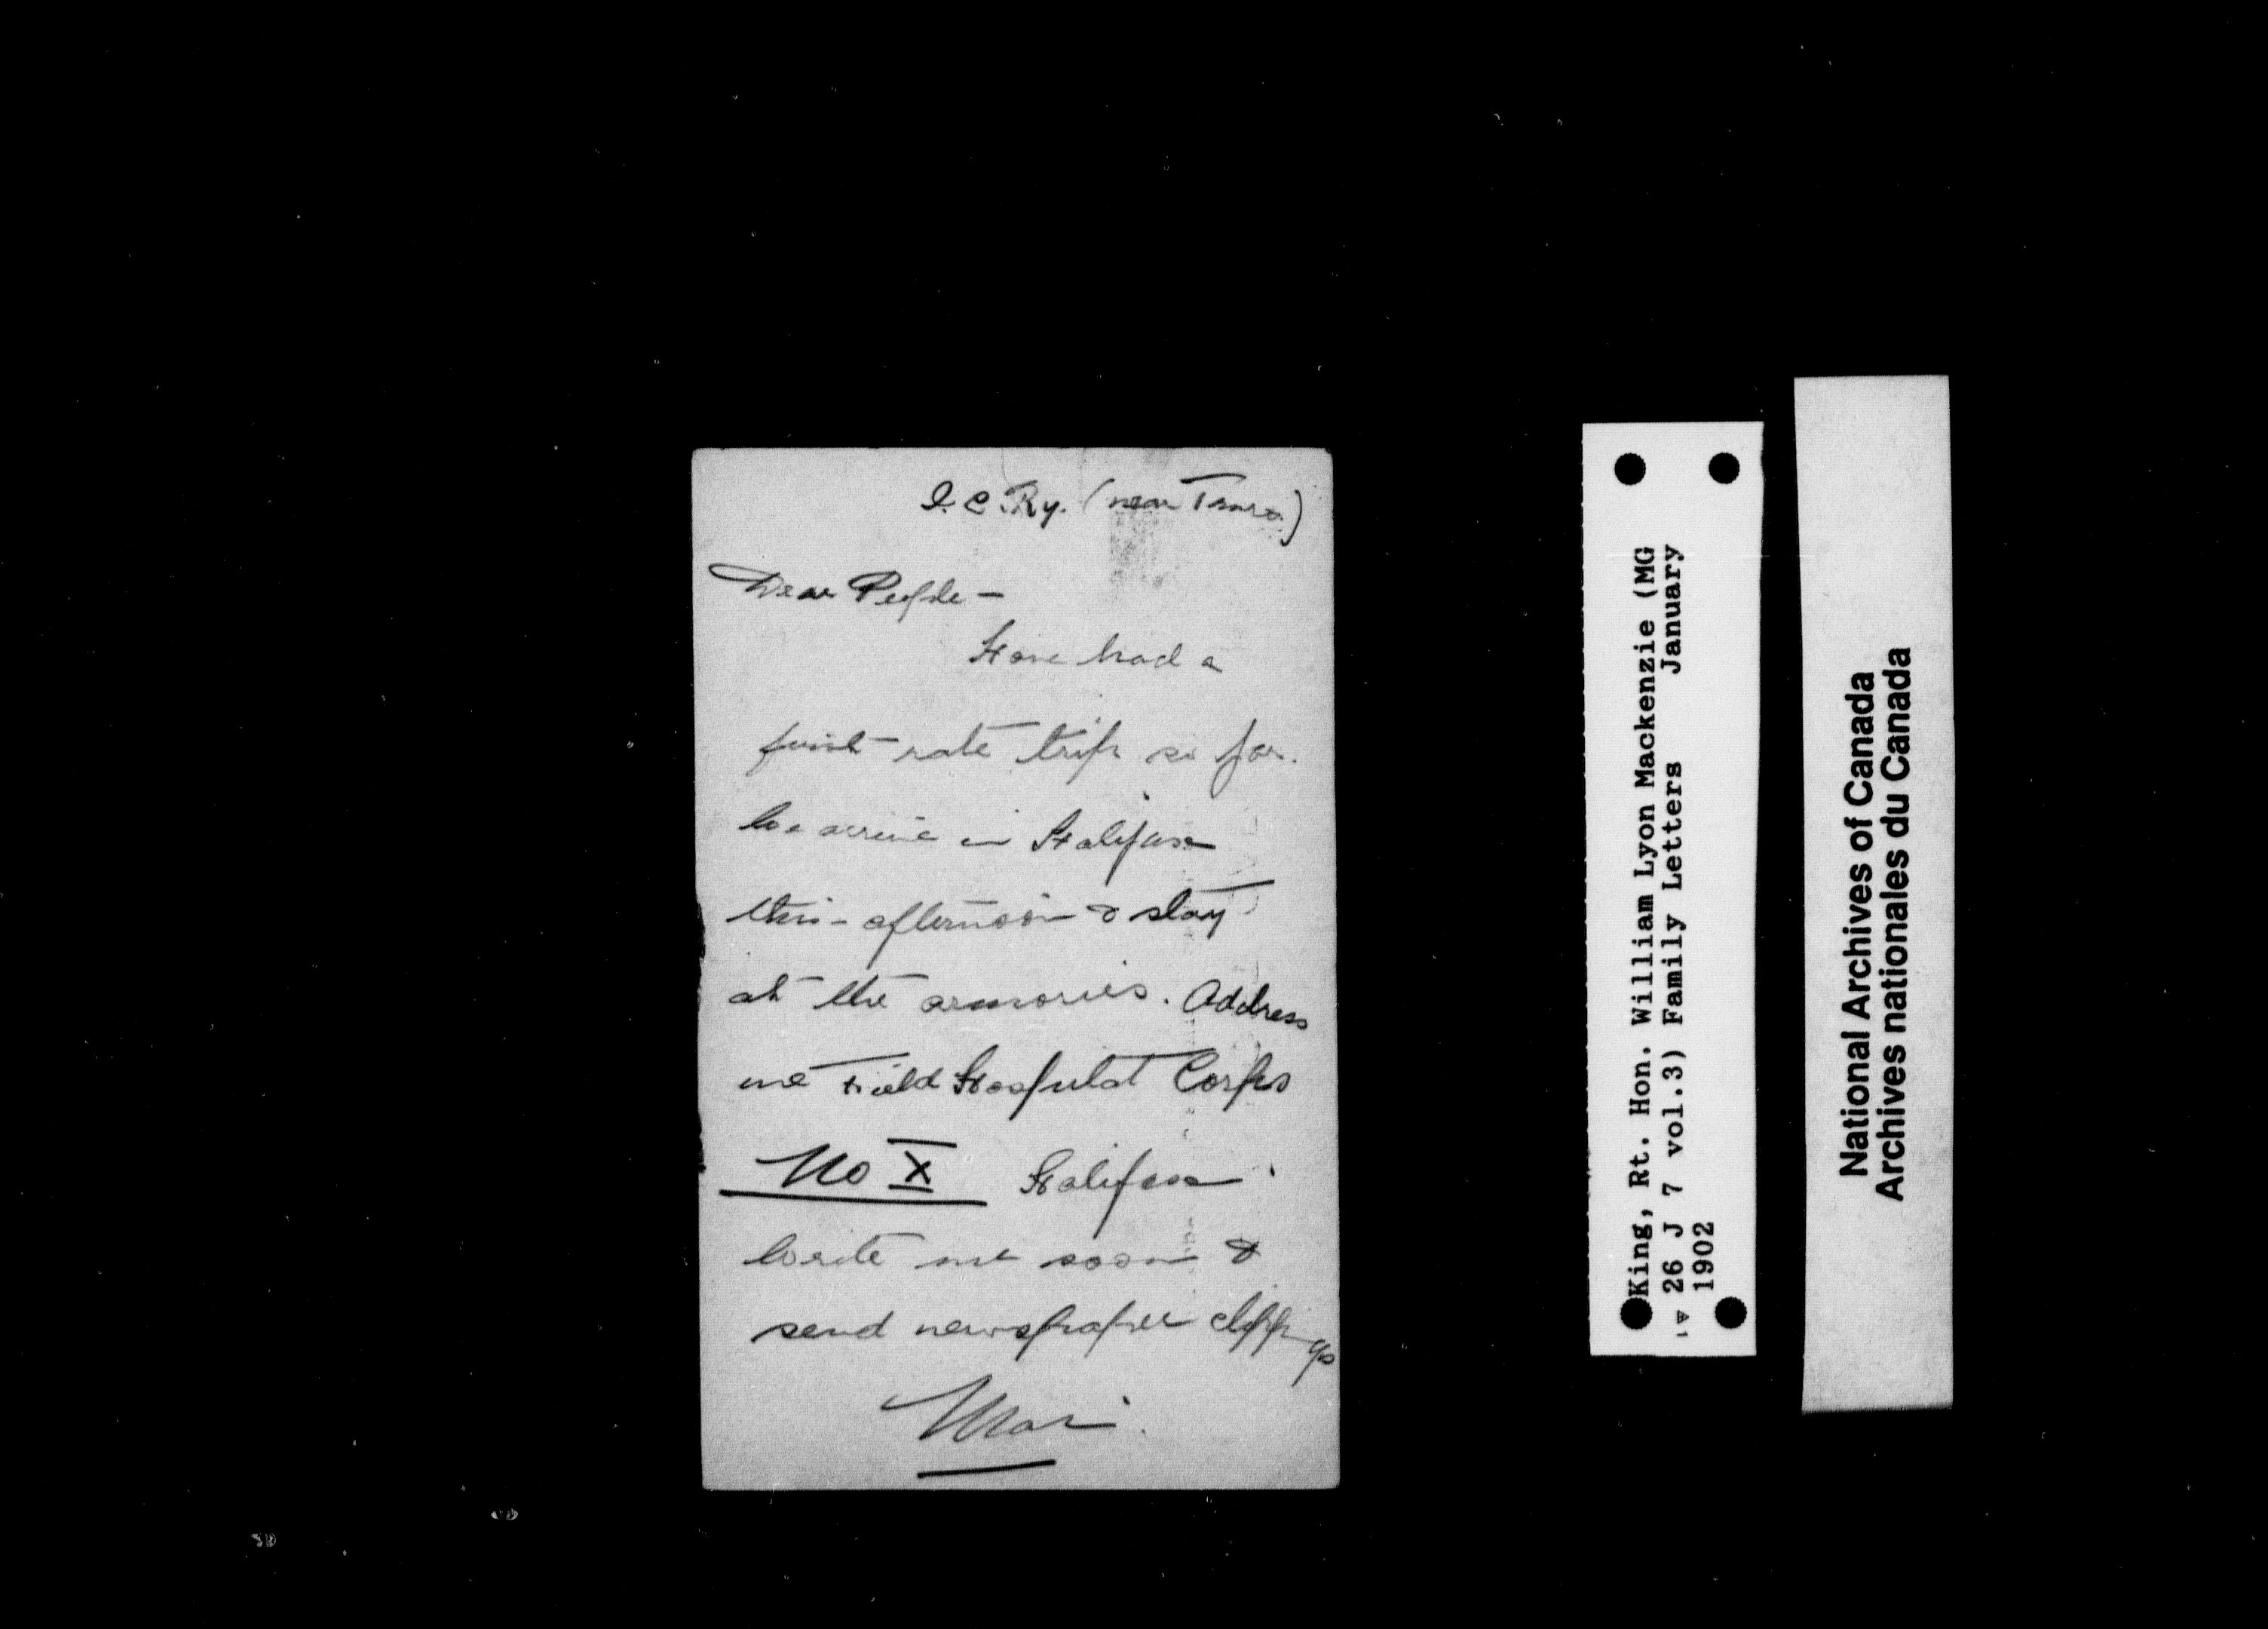 I. C. Ry. (near Truro)
Dear People —
Have had a
first-rate trip so far.
We arrive in Halifax
this afternoon & stay
at the armories. Address
me Field Hospital Corps
No X Halifax.
Write me soon &
send newspaper clippings
Max.
King, Rt. Hon. William Lyon Mackenzie (MG
26 J 7 vol.3) Family Letters January
1902
National Archives of Canada
Archives nationales du Canada